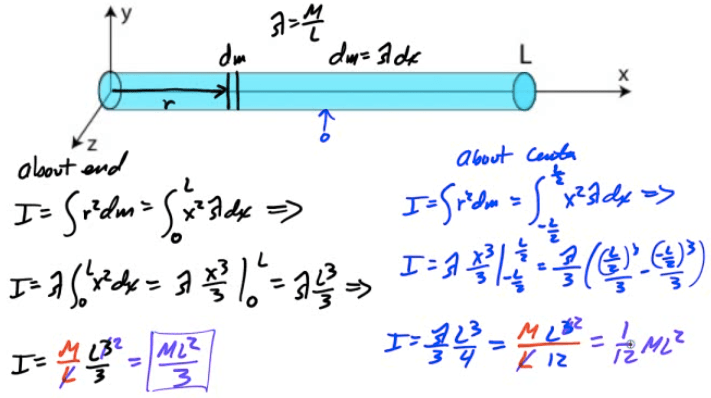 y
λ = M/L
dm
dm = λdx
L
x
r
0
z
about end
I = ∫r²dm = ∫₀ᴸ x²λdx ⇒
I = λ∫₀ᴸ x²dx = λ x³/3 |₀ᴸ = λ L³/3 ⇒
I = M/L L³²/3 = ML²/3
About Center
I = ∫r²dm = ∫_{-L/2}^{L/2} x²λdx ⇒
I = λ x³/3 |_{-L/2}^{L/2} = λ/3 ((L/2)³/3 - (-L/2)³/3)
I = λ/3 L³/4 = M/L L³²/12 = 1/12 ML²